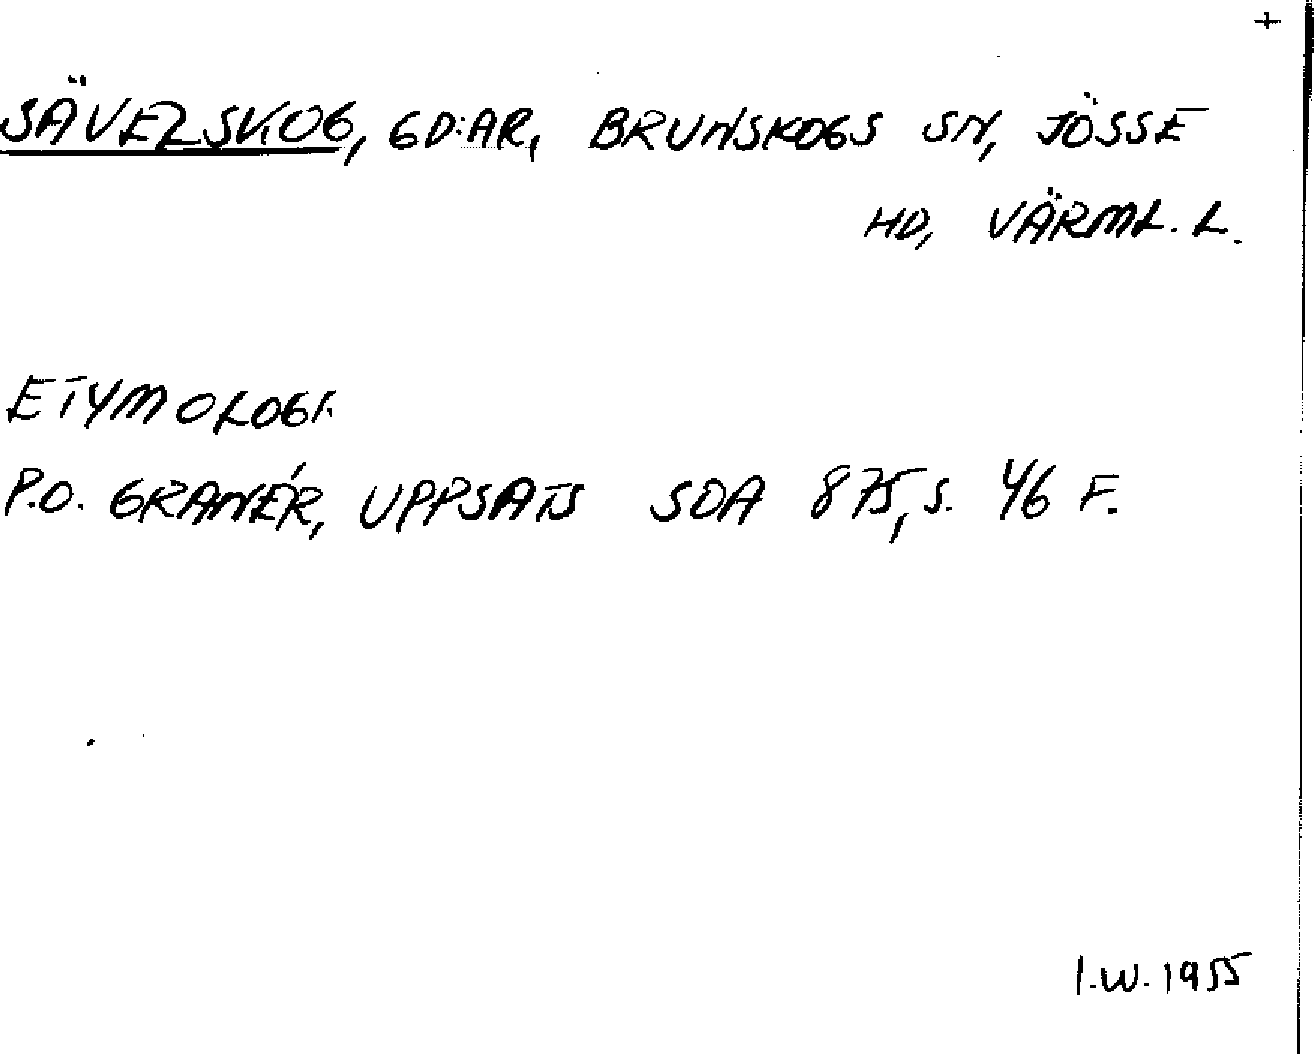 +
SÄVELSKOG, GD:AR, BRUNSKOGS SN, JÖSSE
HD, VÄRML. L.
ETYMOLOGI
P.O. GRANÉR, UPPSATS SOA 875, S. 46 F.
I.W. 1955